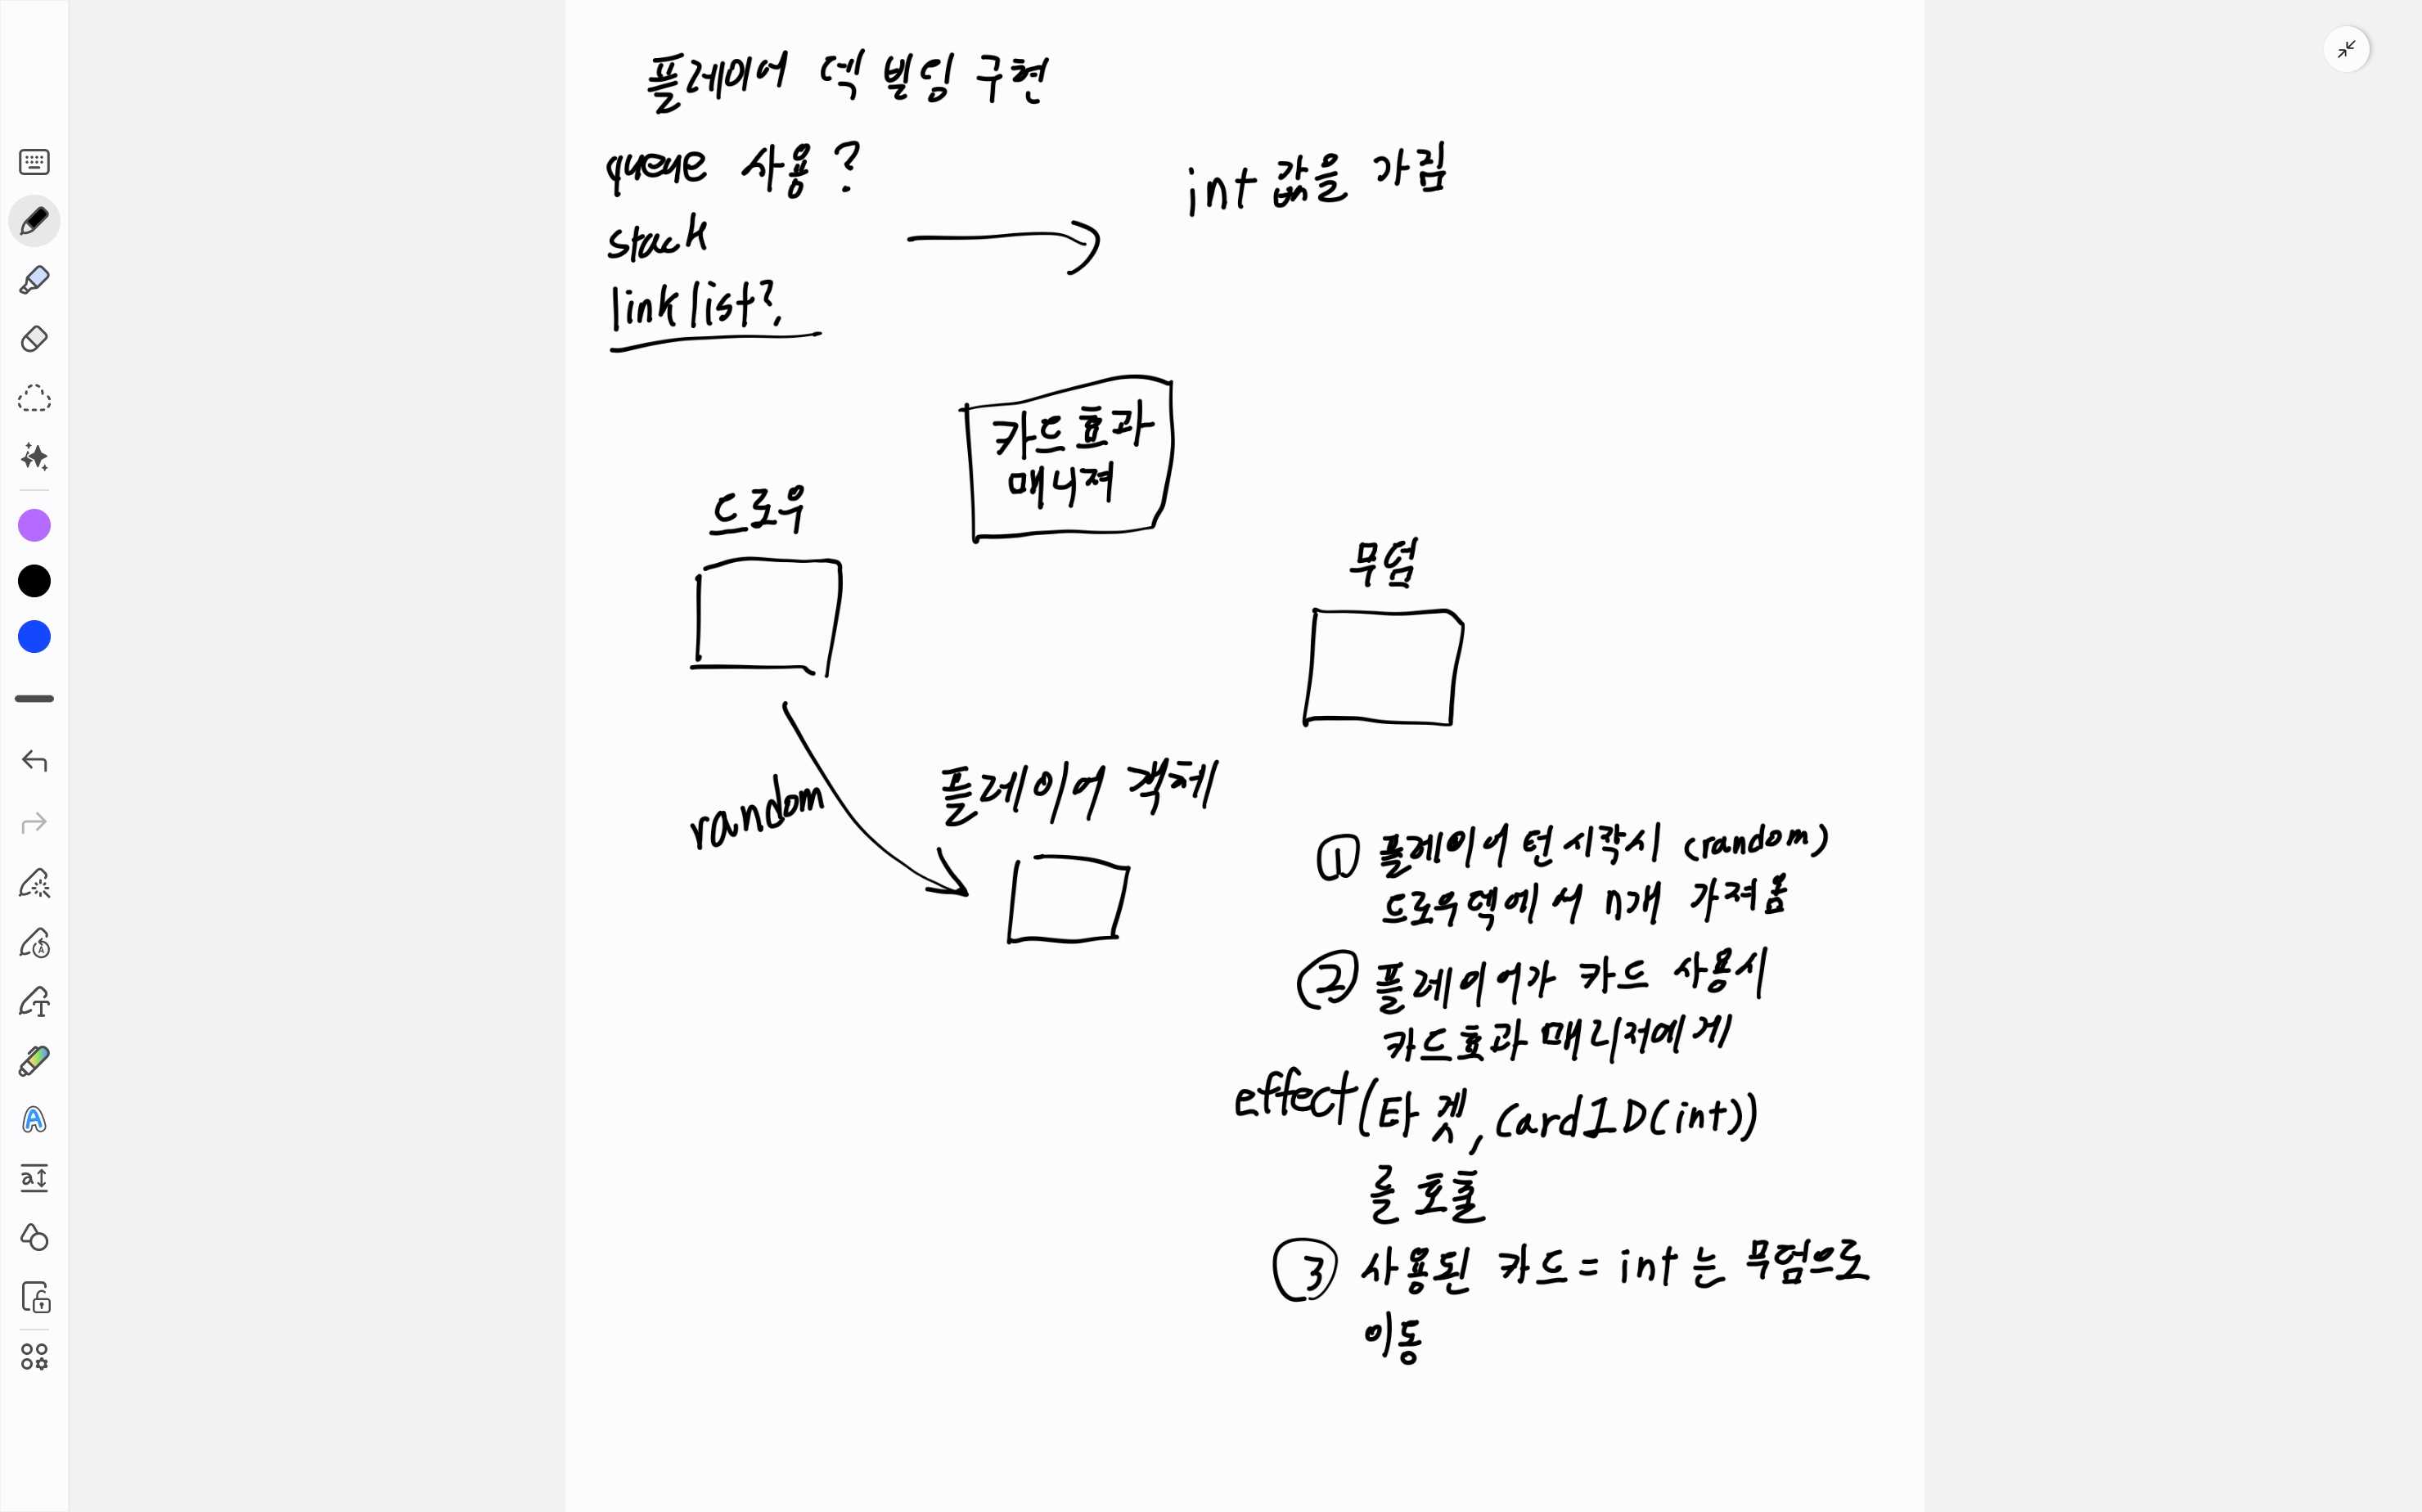 플레이어 덱 빌딩 구현
queue 사용?
stack
link list?
int 값을 가짐
카드효과
매니져
드로우
무덤
random
플레이어 객체
① 플레이어 턴 시작시 (random)
드로우덱에서 n개 가져옴
② 플레이어가 카드 사용시
카드효과 매니저에게
effect(타겟, CardID(int))
를 호출
③ 사용된 카드 = int는 무덤으로
이동